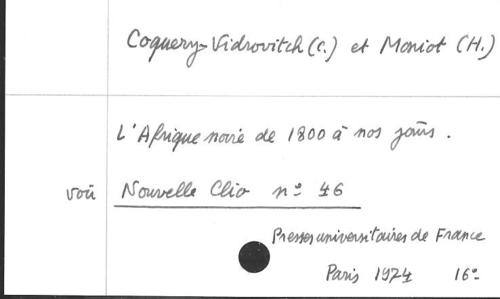 Coquery-Vidrovitch (C.) et Moniot (H.)
L'Afrique noire de 1800 à nos jours.
voir Nouvelle Clio nº 46
Presses universitaires de France
Paris 1974 16º